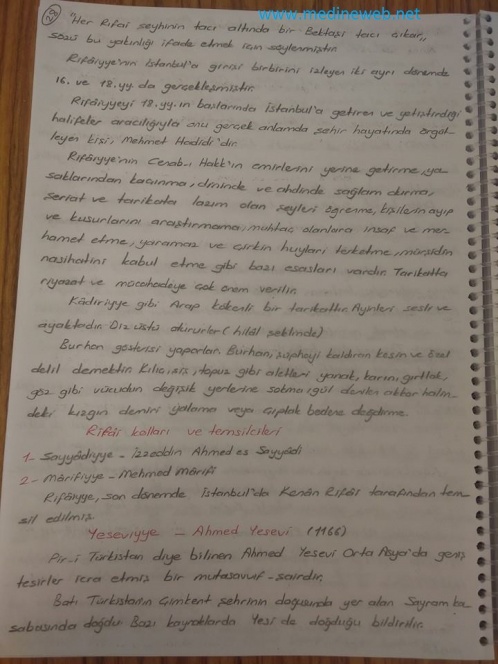 www.medineweb.net
29
"Her Rifai şeyhinin tacı altında bir Bektaşi tacı çıkar,
sözü bu yakınlığı ifade etmek için söylenmiştir.
Rifâiyye'nin İstanbul'a girişi birbirini izleyen iki ayrı dönemde
16. ve 18.yy.da gerçekleşmiştir.
Rifâiyyeyi 18.yy.ın başlarında İstanbul'a getiren ve yetiştirdiği
halifeler aracılığıyla onu gerçek anlamda şehir hayatında örgüt-
leyen kişi; Mehmet Hadidi'dir.
Rifâiyye'nin Cenab-ı Hakk'ın emirlerini yerine getirme, ya-
saklarından kaçınma, dininde ve ahdinde sağlam durma,
şeriat ve tarikata lazım olan şeyleri öğrenme, kişilerin ayıp
ve kusurlarını araştırmama, muhtaç olanlara insaf ve mer-
hamet etme, yaramaz ve çirkin huyları terketme, mürşidin
nasihatini kabul etme gibi bazı esasları vardır. Tarikatta
riyazat ve mücahedeye çok önem verilir.
Kâdiriyye gibi Arap kökenli bir tarikattır. Ayinleri sesli ve
ayaktadır. Diz üstü otururlar (hilâl şeklinde)
Burhan gösterisi yaparlar. Burhan, şüpheyi kaldıran kesin ve özel
delil demektir. Kılıç, şiş, topuz gibi aletleri yanak, karın, gırtlak,
göz gibi vücudun değişik yerlerine sokma, gül denilen aktar halin-
deki kızgın demiri yalama veya çıplak bedene değdirme.
Rifâi kolları ve temsilcileri
1- Sayyâdiyye - İzzeddin Ahmed es Sayyâdi
2- Mârifiyye - Mehmed Mârifi
Rifâiyye, son dönemde İstanbul'da Kenân Rifâi tarafından tem-
sil edilmiş
Yeseviyye - Ahmed Yesevi (1166)
Pir-i Türkistan diye bilinen Ahmed Yesevi Orta Asya'da geniş
tesirler icra etmiş bir mutasavvıf-şairdir.
Batı Türkistan'ın Çimkent şehrinin doğusunda yer alan Sayram ka-
sabasında doğdu. Bazı kaynaklarda Yesi de doğduğu bildirilir.